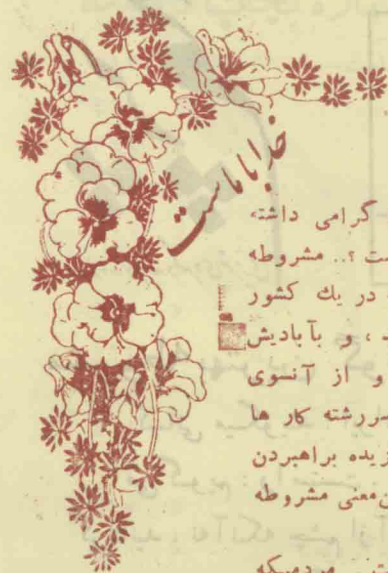 خدا با ماست
گرامی داشته
ست ؟.. مشروطه
در یك کشور
، و بآبادیش
و از آنسوی
سررشته کار ها
زیده براهبردن
معنی مشروطه
مردمیکه